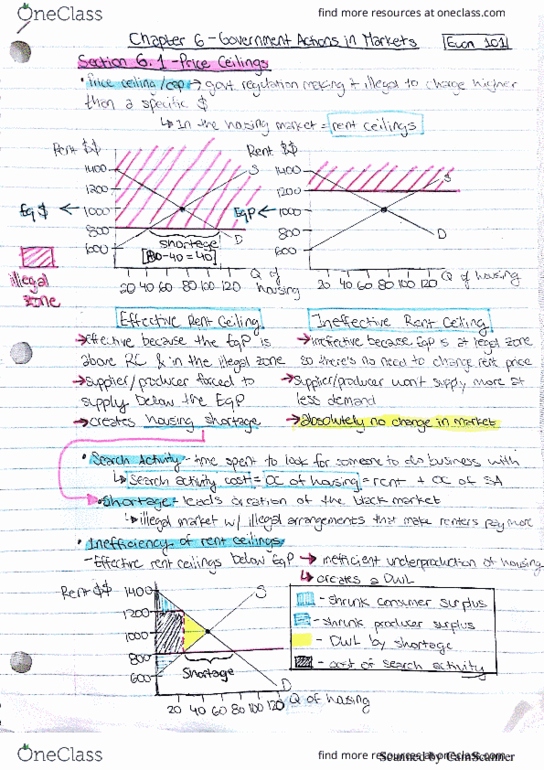 OneClass
find more resources at oneclass.com
Chapter 6 - Government Actions in Markets Econ 101
Section 6.1 - Price Ceilings
• Price ceiling/cap → govt. regulation making it illegal to charge higher
than a specific $
↳ In the housing market = rent ceilings
Rent $$
1400
1200
1000
800
600
Eq $ ←
S
D
shortage
[80-40=40]
20 40 60 80 100 120
Q of
housing
illegal
zone
Rent $$
1400
1200
1000
800
600
EqP ←
S
D
20 40 60 80 100 120
Q of housing
Effective Rent Ceiling
→ effective because the EqP is
above RC & in the illegal zone
→ supplier/producer forced to
supply below the EqP
→ creates housing shortage
Ineffective Rent Ceiling
→ ineffective because EqP is at legal zone
so there's no need to change rent price
→ supplier/producer won't supply more at
less demand
→ absolutely no change in market
• Search Activity - time spent to look for someone to do business with
↳ Search activity cost = OC of housing = rent + OC of SA
• Shortage = leads creation of the black market
↳ illegal market w/ illegal arrangements that make renters pay more
• Inefficiency of rent ceilings
- Effective rent ceilings below EqP → inefficient underproduction of housing
↳ creates a DWL
Rent $$
1400
1200
1000
800
600
S
D
Shortage
20 40 60 80 100 120 Q of housing
- shrunk consumer surplus
- shrunk producer surplus
- DWL by shortage
- cost of search activity
OneClass
find more resources at oneclass.com
Scanned by CamScanner